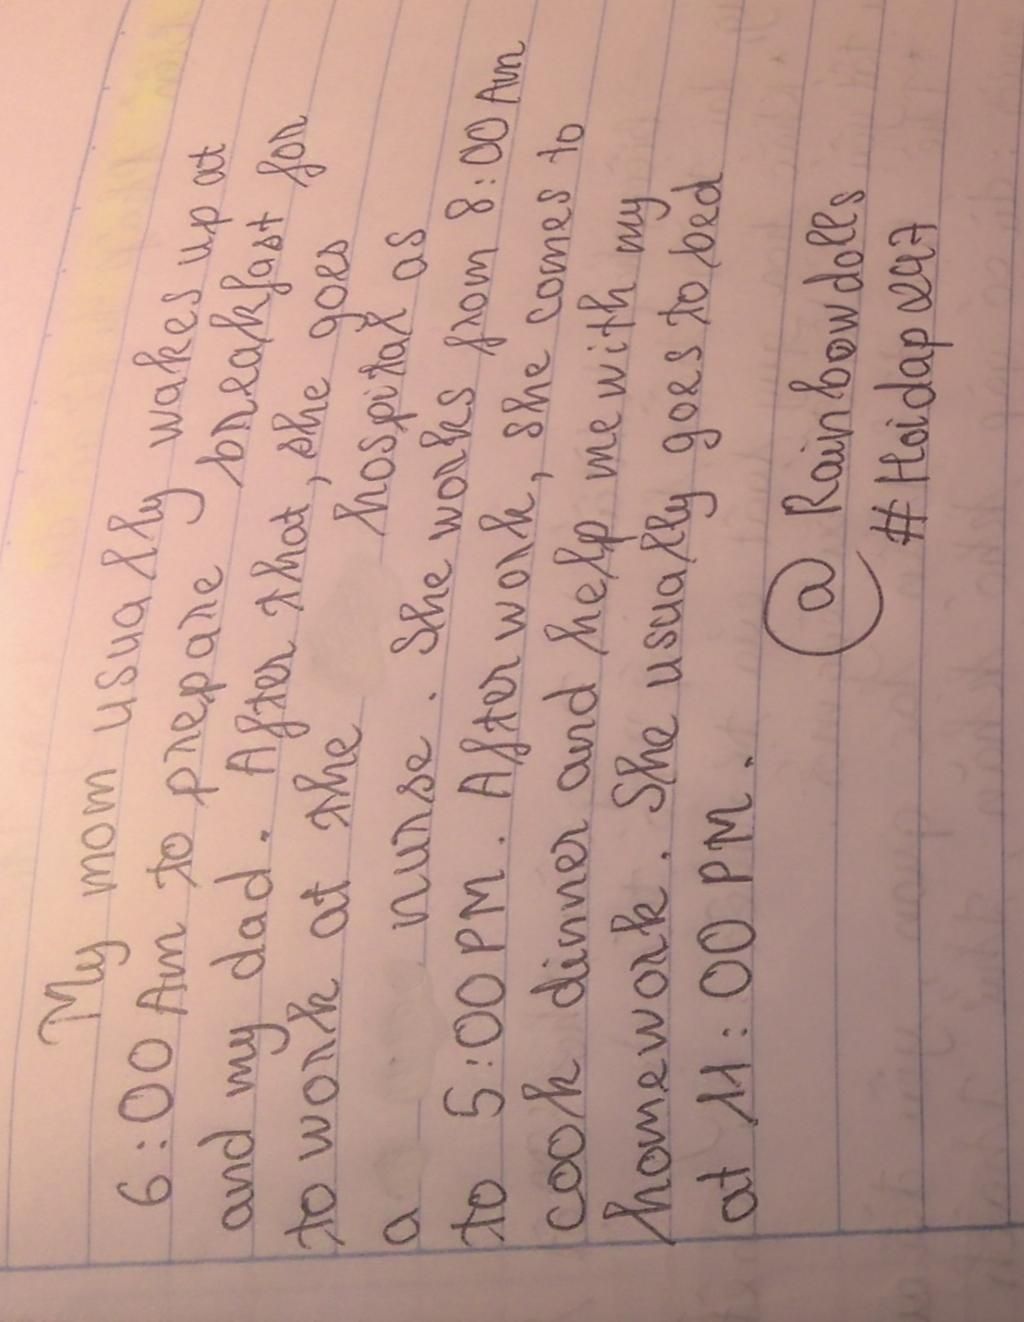 My mom usually wakes up at
6:00 Am to prepare breakfast for
and my dad. After that, she goes
to work at the hospital as
a nurse. She works from 8:00 Am
to 5:00 PM. After work, she comes to
cook dinner and help me with my
homework. She usually goes to bed
at 11:00 PM.
@ Rainbowdolls
#Hoidap247